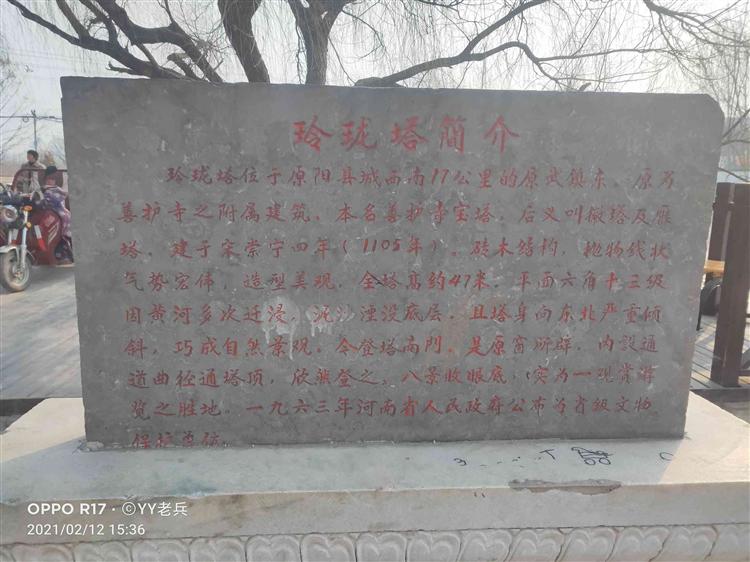 玲珑塔简介
玲珑塔位于原阳县城西南17公里的原武镇东。原为
善护寺之附属建筑。本名善护寺宝塔。后又叫徽塔及雁
塔。建于宋崇宁四年(1105年)。砖木结构，抛物线状
气势宏伟，造型美观。全塔高约47米。平面六角十三级
因黄河多次迁浸，泥沙湮没底层。且塔身向东北严重倾
斜，巧成自然景观。今登塔南门，是原窗所辟，内設通
道曲径通塔顶，欣然登之，八景收眼底，实为一观赏游
览之胜地。一九六三年河南省人民政府公布为省级文物
保护单位。
OPPO R17 · ©YY老兵
2021/02/12 15:36